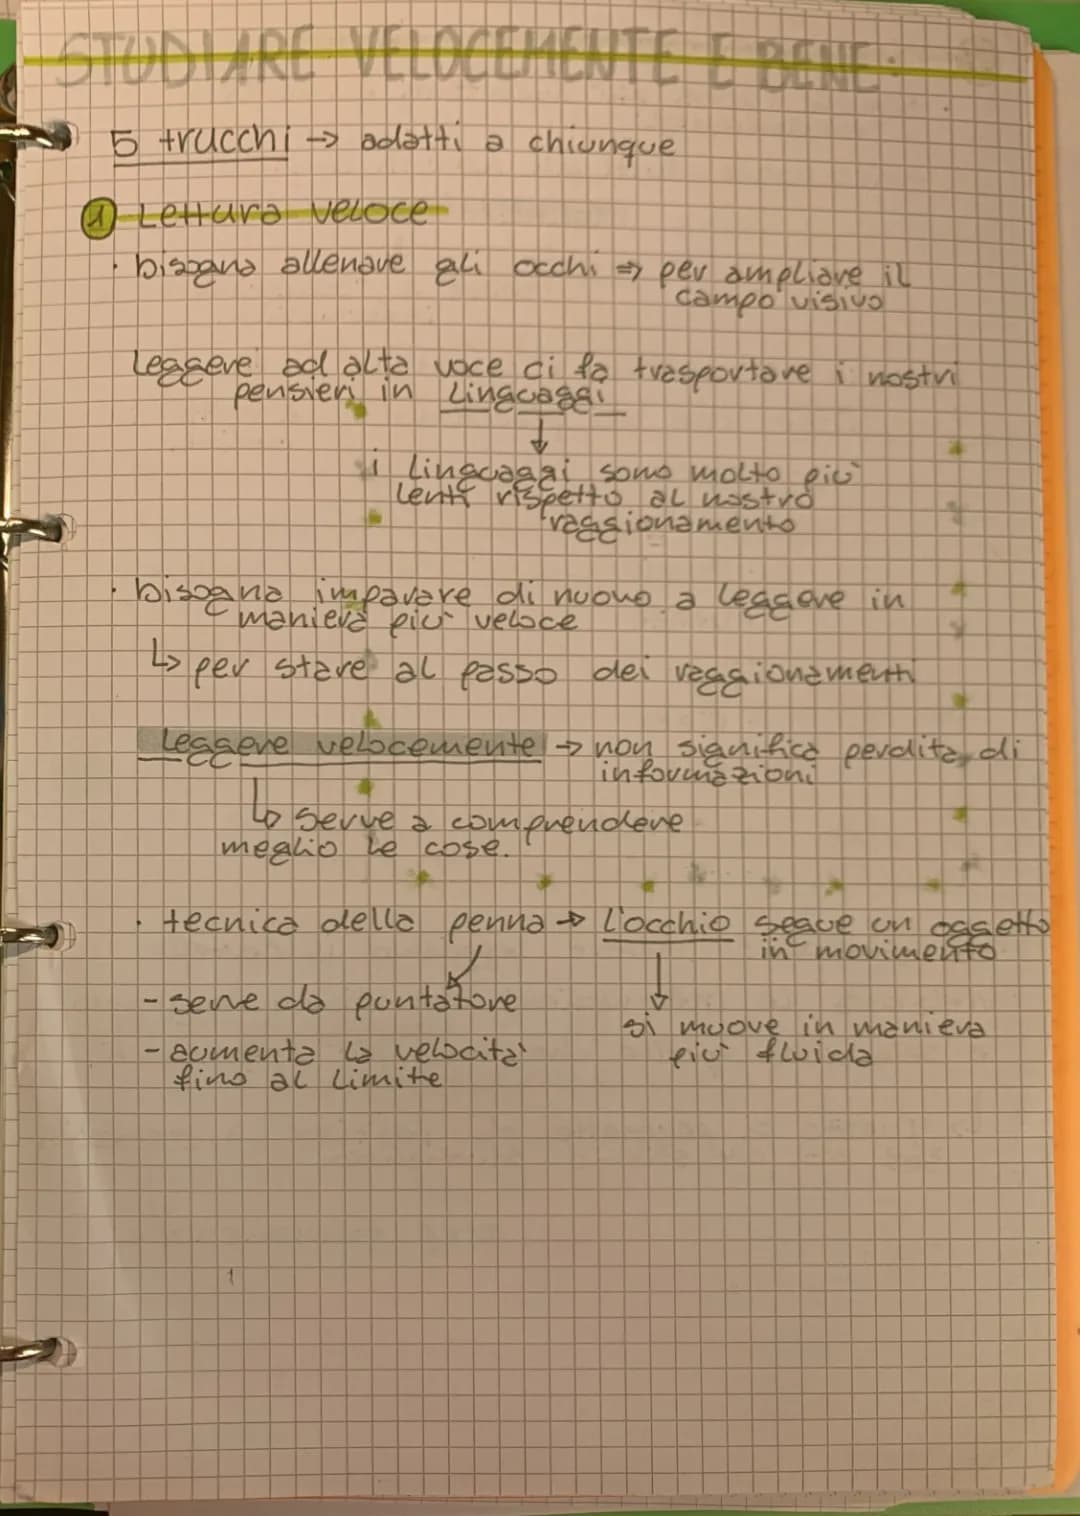 STUDIARE VELOCEMENTE E BENE:
5 trucchi → adatti a chiunque
1 Lettura veloce
· bisogna allenare gli occhi ⇒ per ampliare il
campo visivo
Leggere ad alta voce ci fa trasportare i nostri
pensieri in Linguaggi
↓
i Linguaggi sono molto più
Lenti rispetto al nostro
raggionamento
· bisogna imparare di nuovo a leggere in
maniera più veloce
↳ per stare al passo dei raggionamenti
Leggere velocemente → non significa perdita di
informazioni
↳ Serve a comprendere
meglio le cose.
· tecnica della penna → L'occhio segue un oggetto
in movimento
- serve da puntatore
- aumenta la velocità
fino al Limite
↓
si muove in maniera
più fluida
1